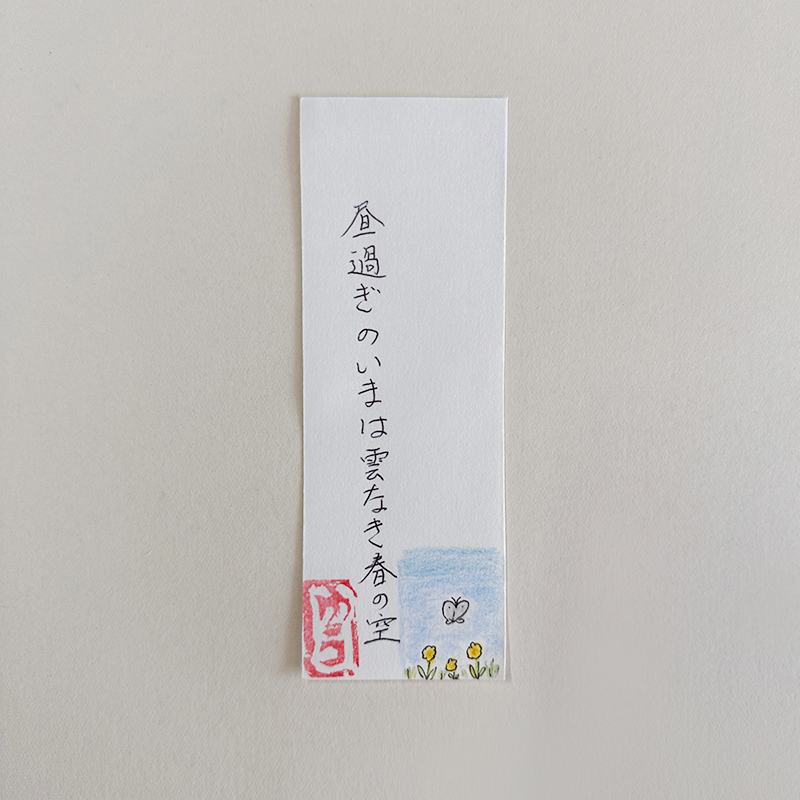 昼過ぎのいまは雲なき春の空